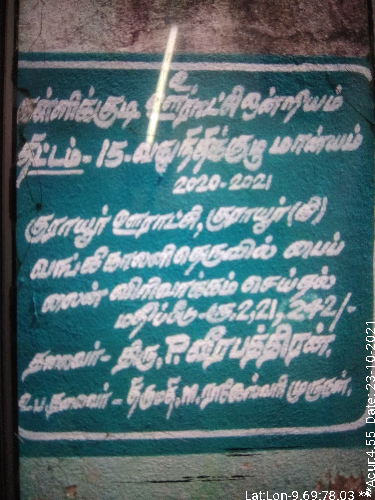 உ
கள்ளிக்குடி ஊராட்சி ஒன்றியம்
திட்டம் - 15-வது நிதிக்குழு மான்யம்
2020-2021
குராயூர் ஊராட்சி, குராயூர் (கி)
காலனி தெருவில் பைப்
லைன் விரிவாக்கம் செய்தல்
மதிப்பீடு - ரூ.2,21,242/-
தலைவர் - திரு. P. வீரபத்திரன்.
உப.தலைவர் - திருமதி. M. முருகன்.
Lat:Lon-9.69:78.03 **Acur:4.55 Date: 23-10-2021